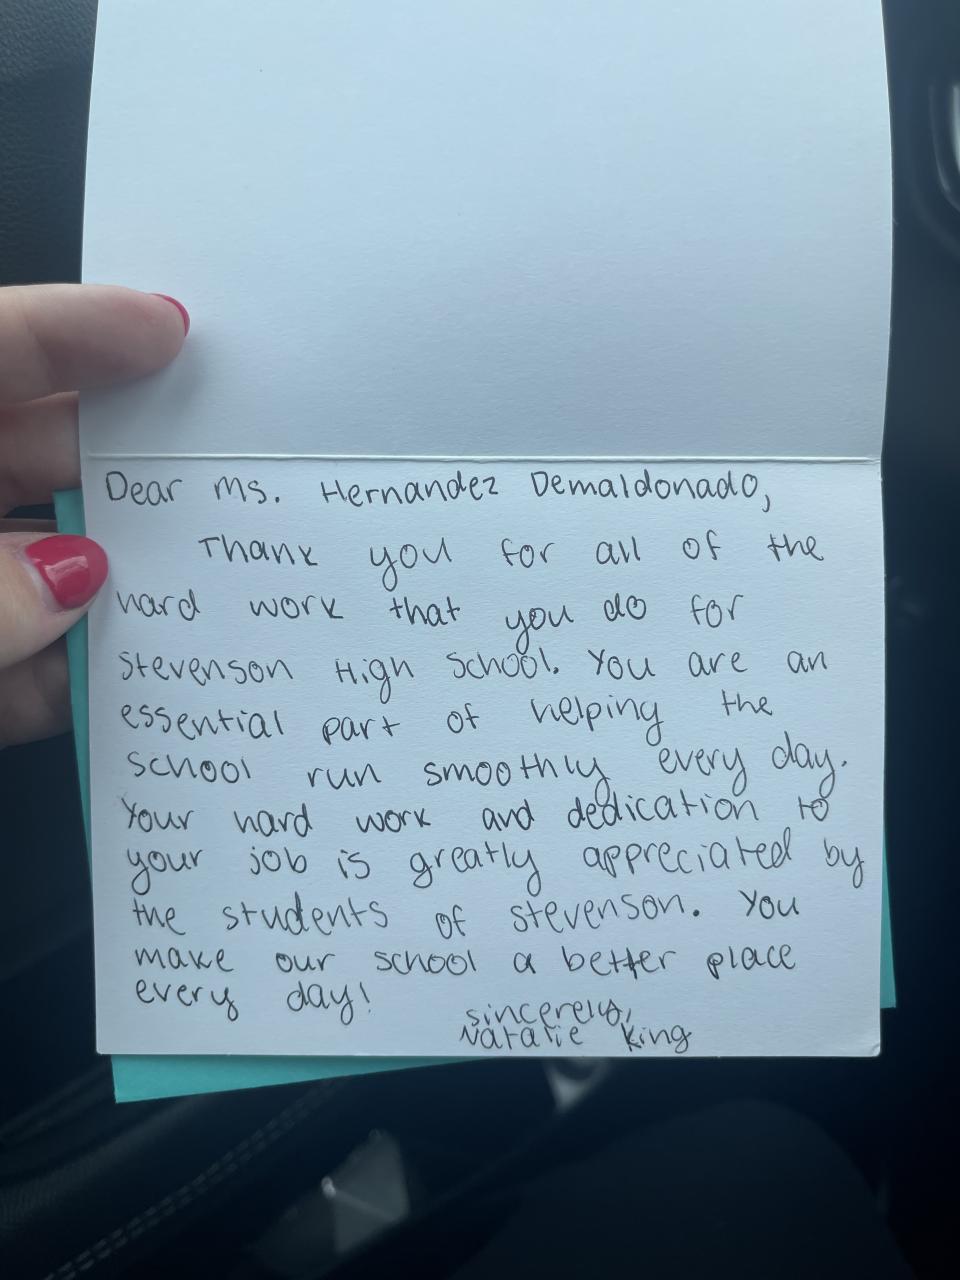 Dear Ms. Hernandez Demaldonado,
Thank you for all of the
hard work that you do for
Stevenson High School. You are an
essential part of helping the
school run smoothly every day.
Your hard work and dedication to
your job is greatly appreciated by
the students of Stevenson. You
make our school a better place
every day!
sincerely,
Natalie King